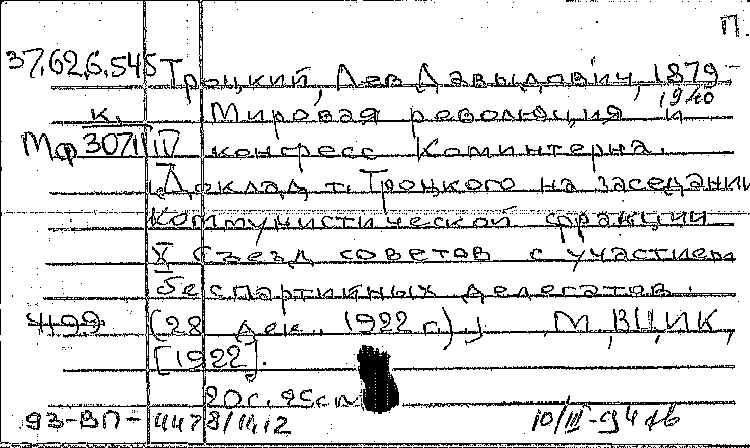 П.
37.62.6.545 Троцкий, Лев Давыдович, 1879-
1940
к. Мировая революция и
Мф 307/1 IV конгресс Коминтерна.
[Доклад т. Троцкого на заседании
коммунистической фракции
X съезд советов с участием
беспартийных делегатов.
4199 (28 дек. 1922 г.).] М, ВЦИК,
[1922].
20с. 25см
93-ВП-4478/11,12 10/III-94